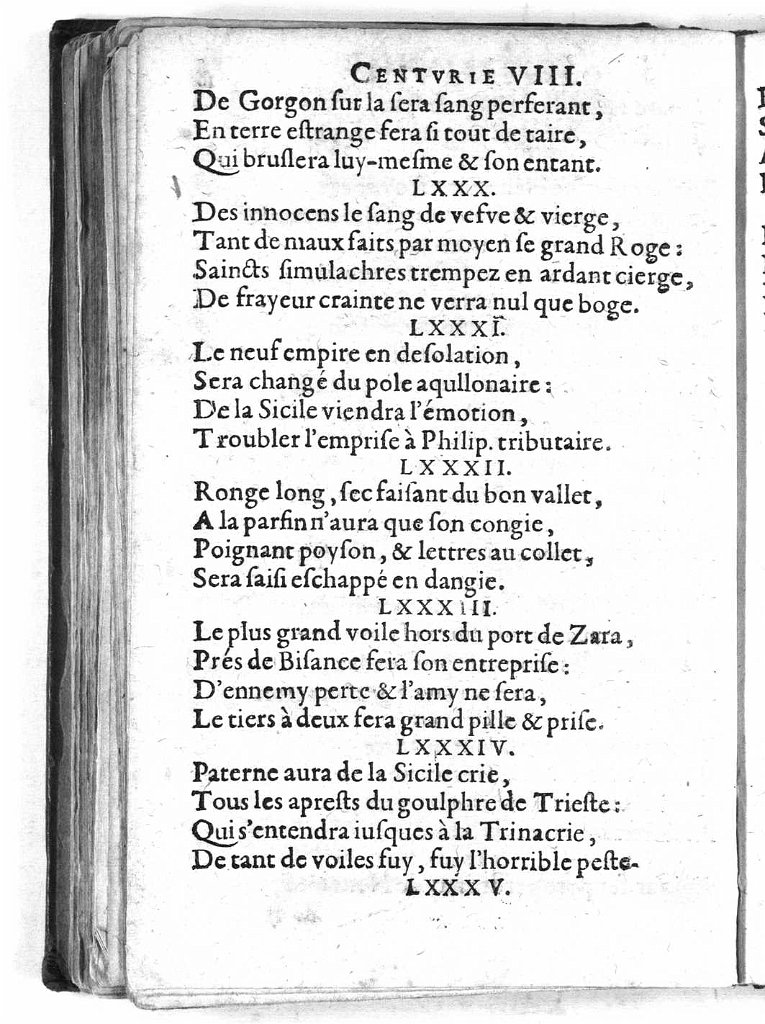 CENTVRIE VIII.
De Gorgon ſur la ſera ſang perferant,
En terre eſtrange fera ſi tout de taire,
Qui bruſlera luy-meſme & ſon entant.
LXXX.
Des innocens le ſang de vefve & vierge,
Tant de maux faits par moyen ſe grand Roge:
Saincts ſimulachres trempez en ardant cierge,
De frayeur crainte ne verra nul que boge.
LXXXI.
Le neuf empire en deſolation,
Sera changé du pole aqullonaire:
De la Sicile viendra l'émotion,
Troubler l'empriſe à Philip. tributaire.
LXXXII.
Ronge long, ſec faiſant du bon vallet,
A la parfin n'aura que ſon congie,
Poignant poyſon, & lettres au collet,
Sera ſaiſi eſchappé en dangie.
LXXXIII.
Le plus grand voile hors du port de Zara,
Prés de Biſance fera ſon entrepriſe:
D'ennemy perte & l'amy ne ſera,
Le tiers à deux fera grand pille & priſe.
LXXXIV.
Paterne aura de la Sicile crie,
Tous les apreſts du goulphre de Trieſte:
Qui s'entendra iuſques à la Trinacrie,
De tant de voiles fuy, fuy l'horrible peſte.
LXXXV.